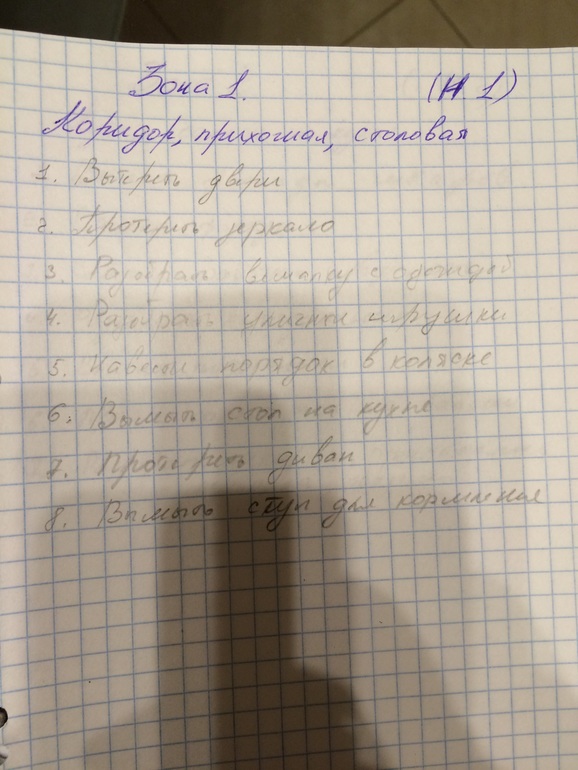 Зона 1. (Н. 1)
Коридор, прихожая, столовая
1. Вытереть двери
2. Протереть зеркало
3. Разобрать вешалку с одеждой
4. Разобрать уличные игрушки
5. Навести порядок в коляске
6. Вымыть стол на кухне
7. Протереть диван
8. Вымыть стул для кормления